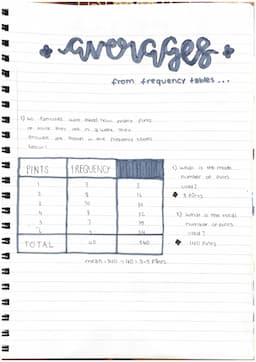 averages
from frequency tables...
1) 40 families were asked how many pints
of milk they use in a week. Their
answers are shown in the frequency table
below:
PINTS FREQUENCY
1
2 8 16
3 10
4 8 32
5 7
6
TOTAL 40 140
mean = 140 ÷ 40 = 3.5 pints
1) what is the mode
number of pints
used?
3 pints
2) what is the total
number of pints
used?
140 pints